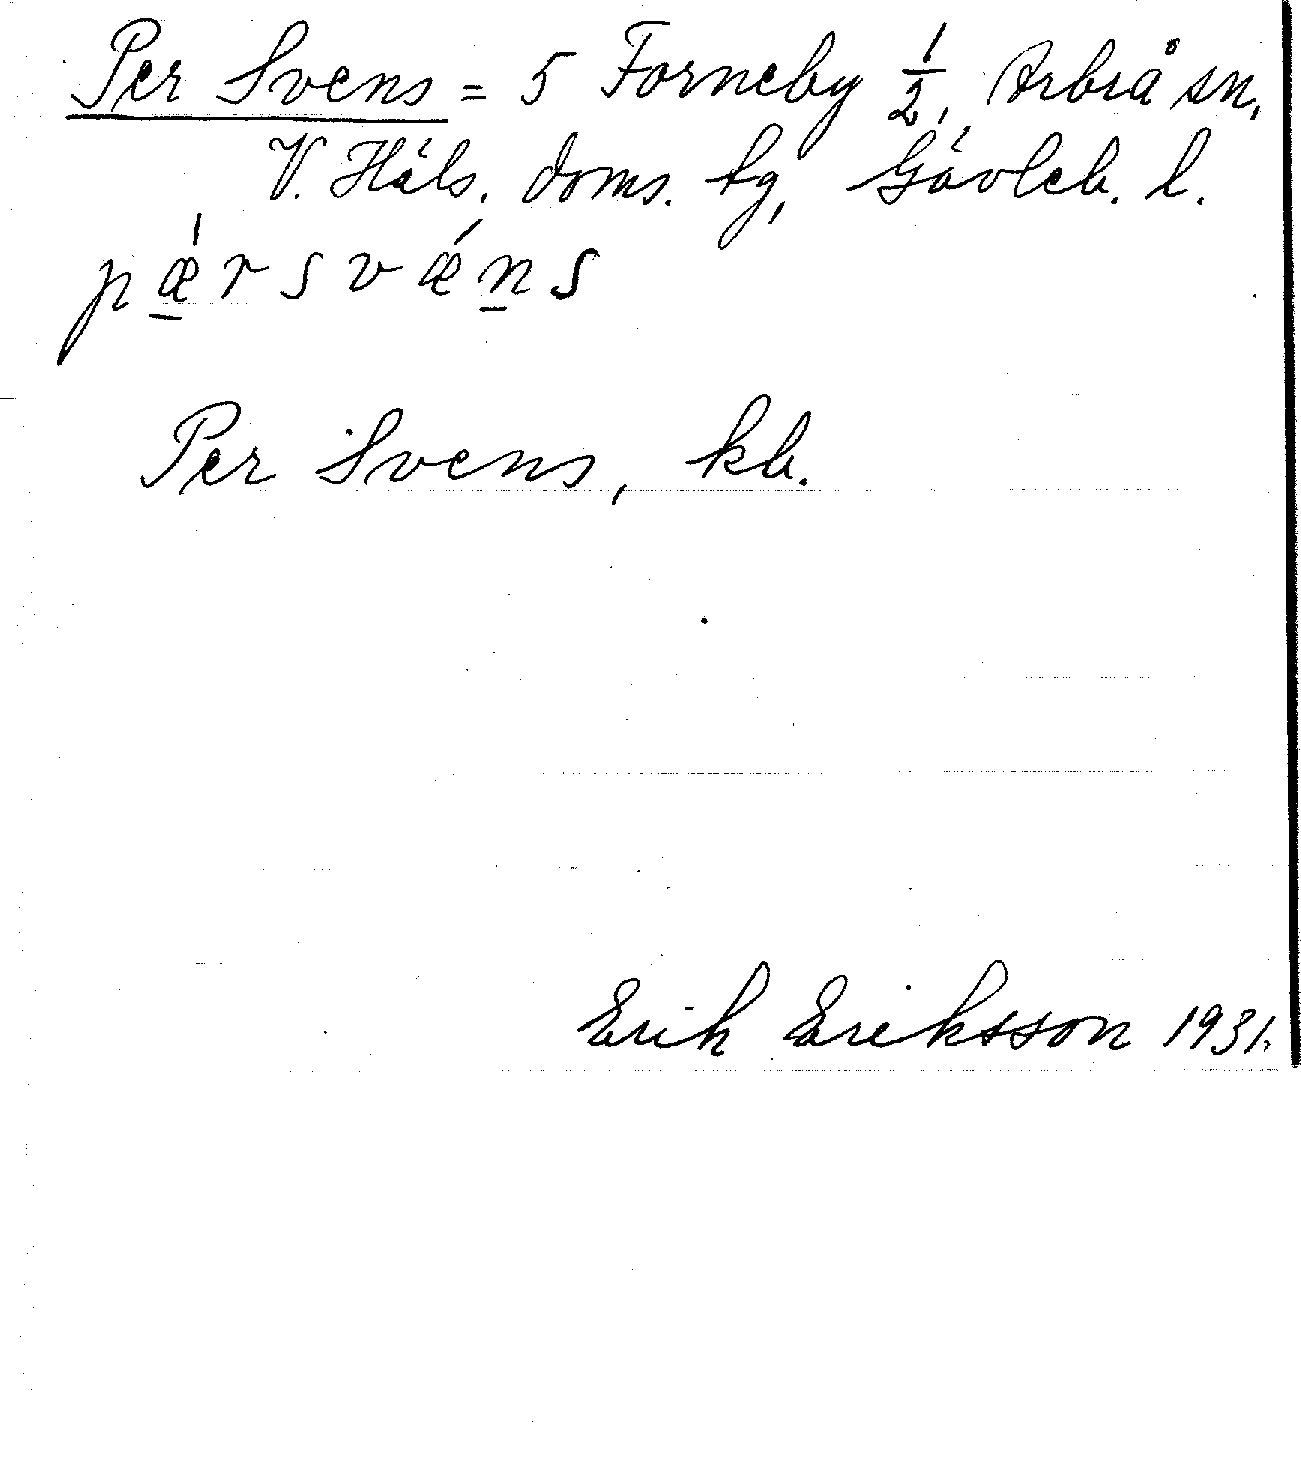 Per Svens = 5 Forneby 1/2, Arbrå sn,
V. Häls. doms. tg, Gävleb. l.
pǽ̠rsvǽn̠s
Per Svens, kb.
Erik Eriksson 1931.